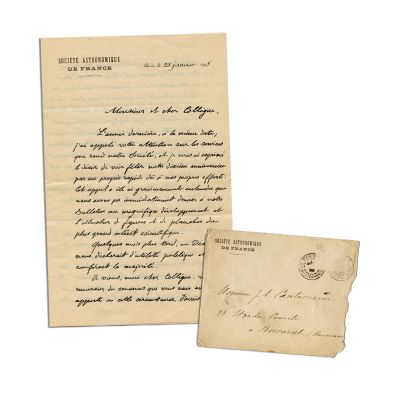 SOCIÉTÉ ASTRONOMIQUE
DE FRANCE
Paris, le 23 janvier
Monsieur et cher Collègue,
L'année dernière, à la même date,
j'ai appelé votre attention sur les services
que rend notre Société, et je vous ai exprimé
le désir de voir fêter notre dixième anniversaire
par un progrès rapide dû à nos propres efforts.
Cet appel a été si gracieusement entendu que
nous avons pu immédiatement donner à notre
Bulletin un magnifique développement et
l'illustrer de figures et de planches du
plus grand intérêt scientifique.
Quelques mois plus tard, un
nous déclarait d'utilité publique et
confirait la majorité.
Je viens, mon cher Collègue,
remercier du concours que vous nous avez
apporté en cette circonstance.
SOCIÉTÉ ASTRONOMIQUE
DE FRANCE
Monsieur J. Cantacuzène
Strada
à Bucarest (Roumanie